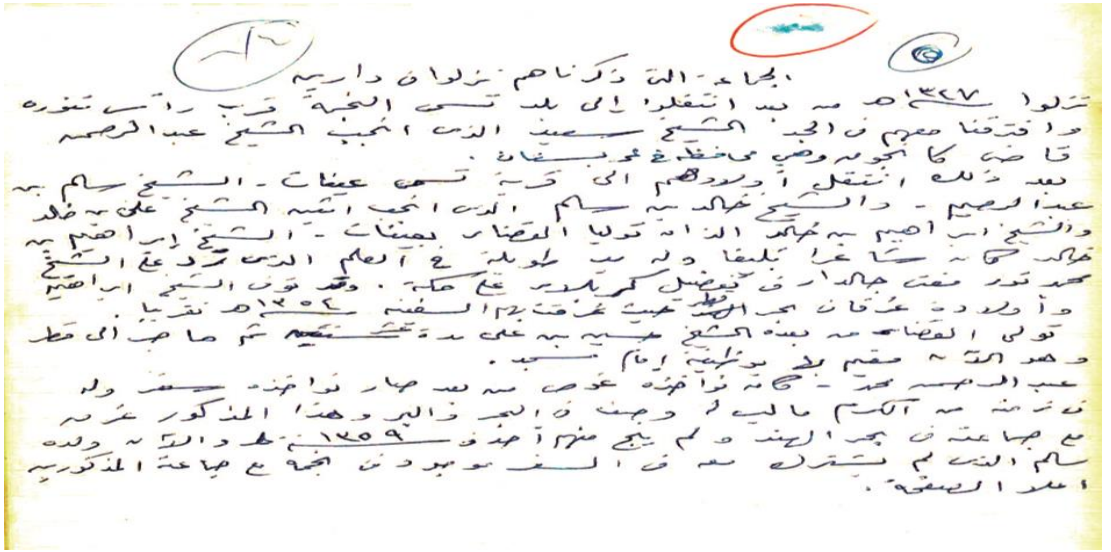 الجماعة التي ذكرناهم نزلوا في دارين
نزلوا ١٣٢٧هـ من بعد انتقلوا إلى بلد تسمى النخبة قرب رأس تنوره
وافترقنا معهم في الجد الشيخ سعيد الذي انجب الشيخ عبدالرحمن
قاضي كانجون وهي محافظة في عربستان .
بعد ذلك انتقل أولادهم الى قرية تسمى عينات - الشيخ سالم بن
عبدالرحيم - والشيخ خالد بن سالم الذي انجب اثنين الشيخ علي بن خالد
والشيخ ابراهيم بن خالد الذان توليا القضاء بعينات - الشيخ إبراهيم بن
خالد كان شاعرا بليغا وله يد طويلة في العلم الذي رد على الشيخ
محمد نور مفتي في تفضيل كربلاء على مكة . وقد توفى الشيخ ابراهيم
وأولاده غرقا في بحر قطر حيث غرقت بهم السفينه ١٣٥٢هـ تقريبا .
تولى القضاء من بعده الشيخ حسين بن علي مدة ثم هاجر الى قطر
وهو الآن مقيم بوظيفة إمام مسجد .
عبدالرحمن محمد - كان نواخذه غوص من بعد صار نواخذه سفر وله
في زمنه من الكرم ماليس له وصف في البحر والبر وهذا المذكور غرق
مع جماعته في بحر الهند ولم ينج منهم أحد في ١٣٥٩ والآن ولده
سالم الذي لم يشترك معه في السفر موجود في مع جماعة المذكورين
اعلا الصفحة .